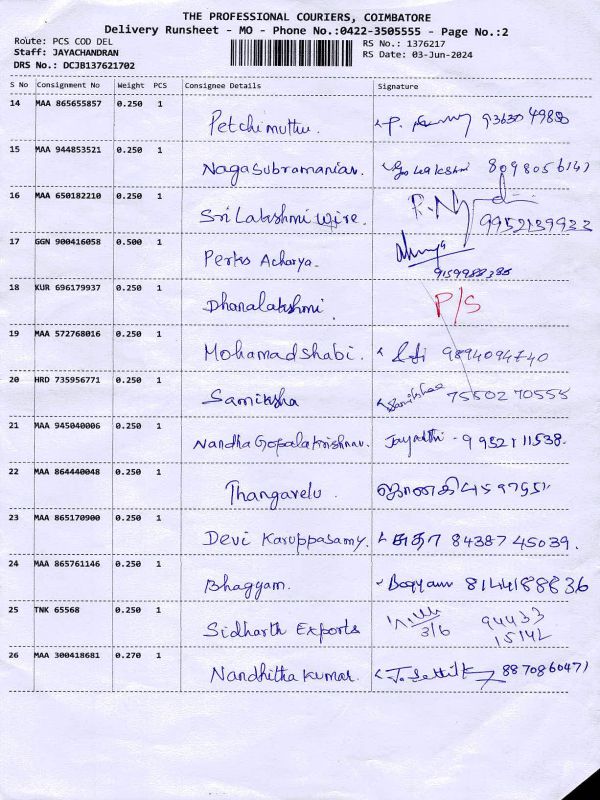 THE PROFESSIONAL COURIERS, COIMBATORE
Delivery Runsheet - MO - Phone No.:0422-3505555 - Page No.:2
Route: PCS COD DEL
Staff: JAYACHANDRAN
DRS No.: DCJB137621702
RS No.: 1376217
RS Date: 03-Jun-2024
S No Consignment No Weight PCS Consignee Details Signature
14 MAA 865655857 0.250 1 Petchimuthu. P.
15 MAA 944853521 0.250 1 Nagasubramanian. 8098056147
16 MAA 650182210 0.250 1 Sri Lakshmi Wire. 9952139932
17 GGN 900416058 0.500 1 Perks Acharya. 9159988386
18 KUR 696179937 0.250 1 Dhanalakshmi. P/S
19 MAA 572768016 0.250 1 Mohamadshabi. 9894094740
20 HRD 735956771 0.250 1 Samiksha Samikshaa 7550270555
21 MAA 945040006 0.250 1 Nandha Gopalakrishnan. Jayanthi - 9952111538.
22 MAA 864440048 0.250 1 Thangavelu. ஜானகி
23 MAA 865170900 0.250 1 Devi Karuppasamy. சுதா 8438745039.
24 MAA 865761146 0.250 1 Bhaggyam. 8144188836
25 TNK 65568 0.250 1 Sidharth Exports 3/6 94433
15142
26 MAA 300418681 0.270 1 Nandhitha Kumar. 8870860471